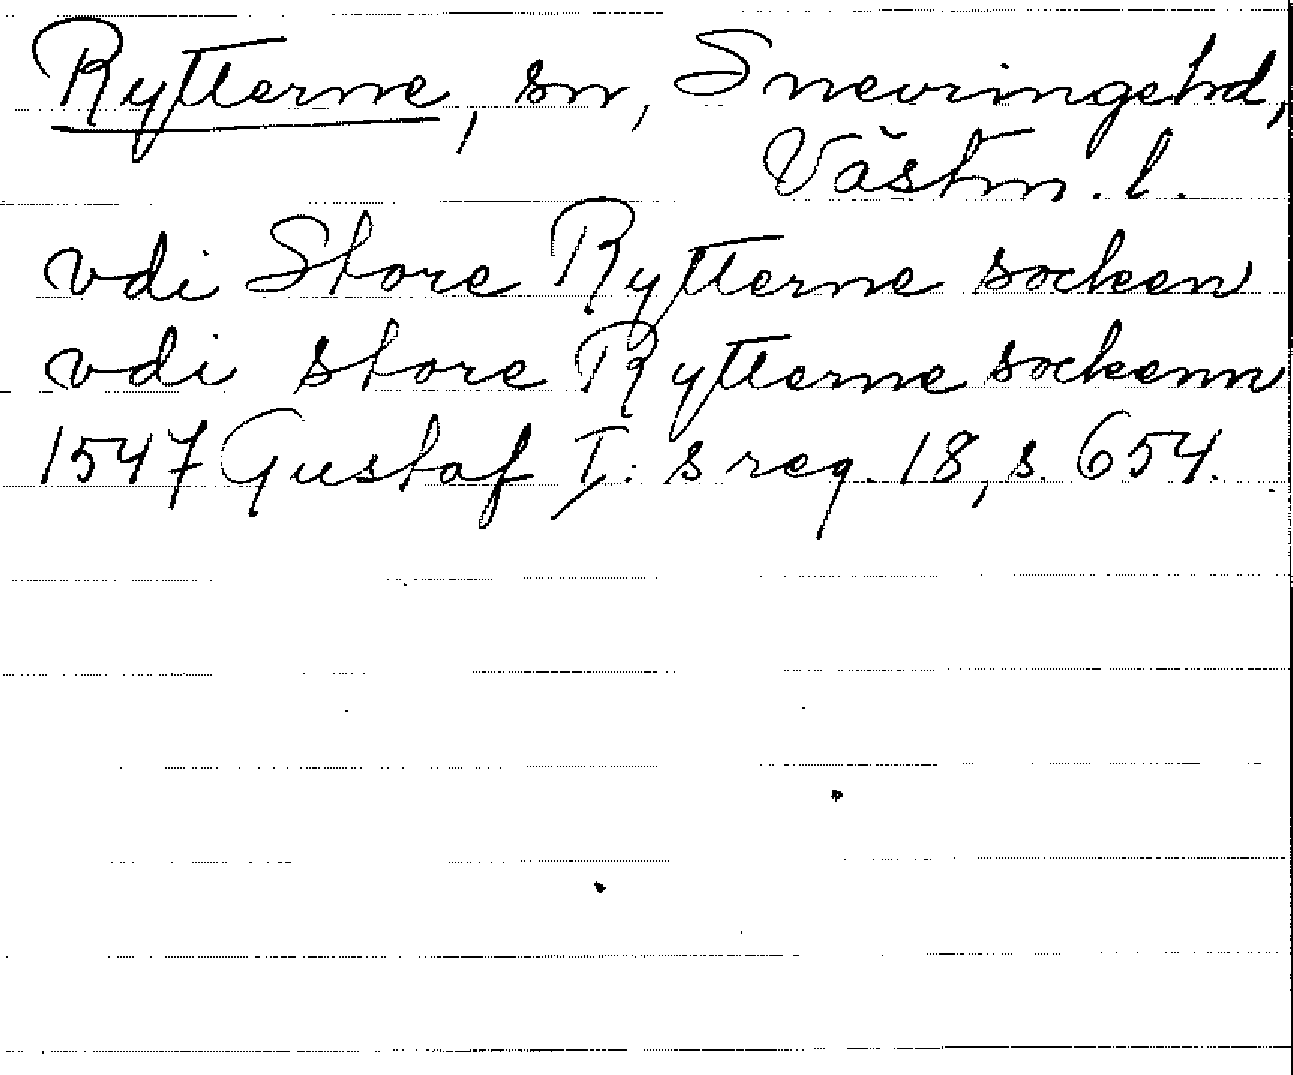 Rytterne, sn, Snevringe hd,
Västm. l.
vdi Store Rytterne socken
vdi store Rytterne sockenn
1547 Gustaf I:s reg. 18, s. 654.